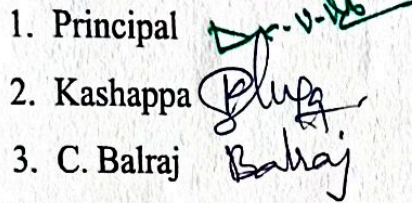 1. Principal
2. Kashappa
3. C. Balraj Balraj